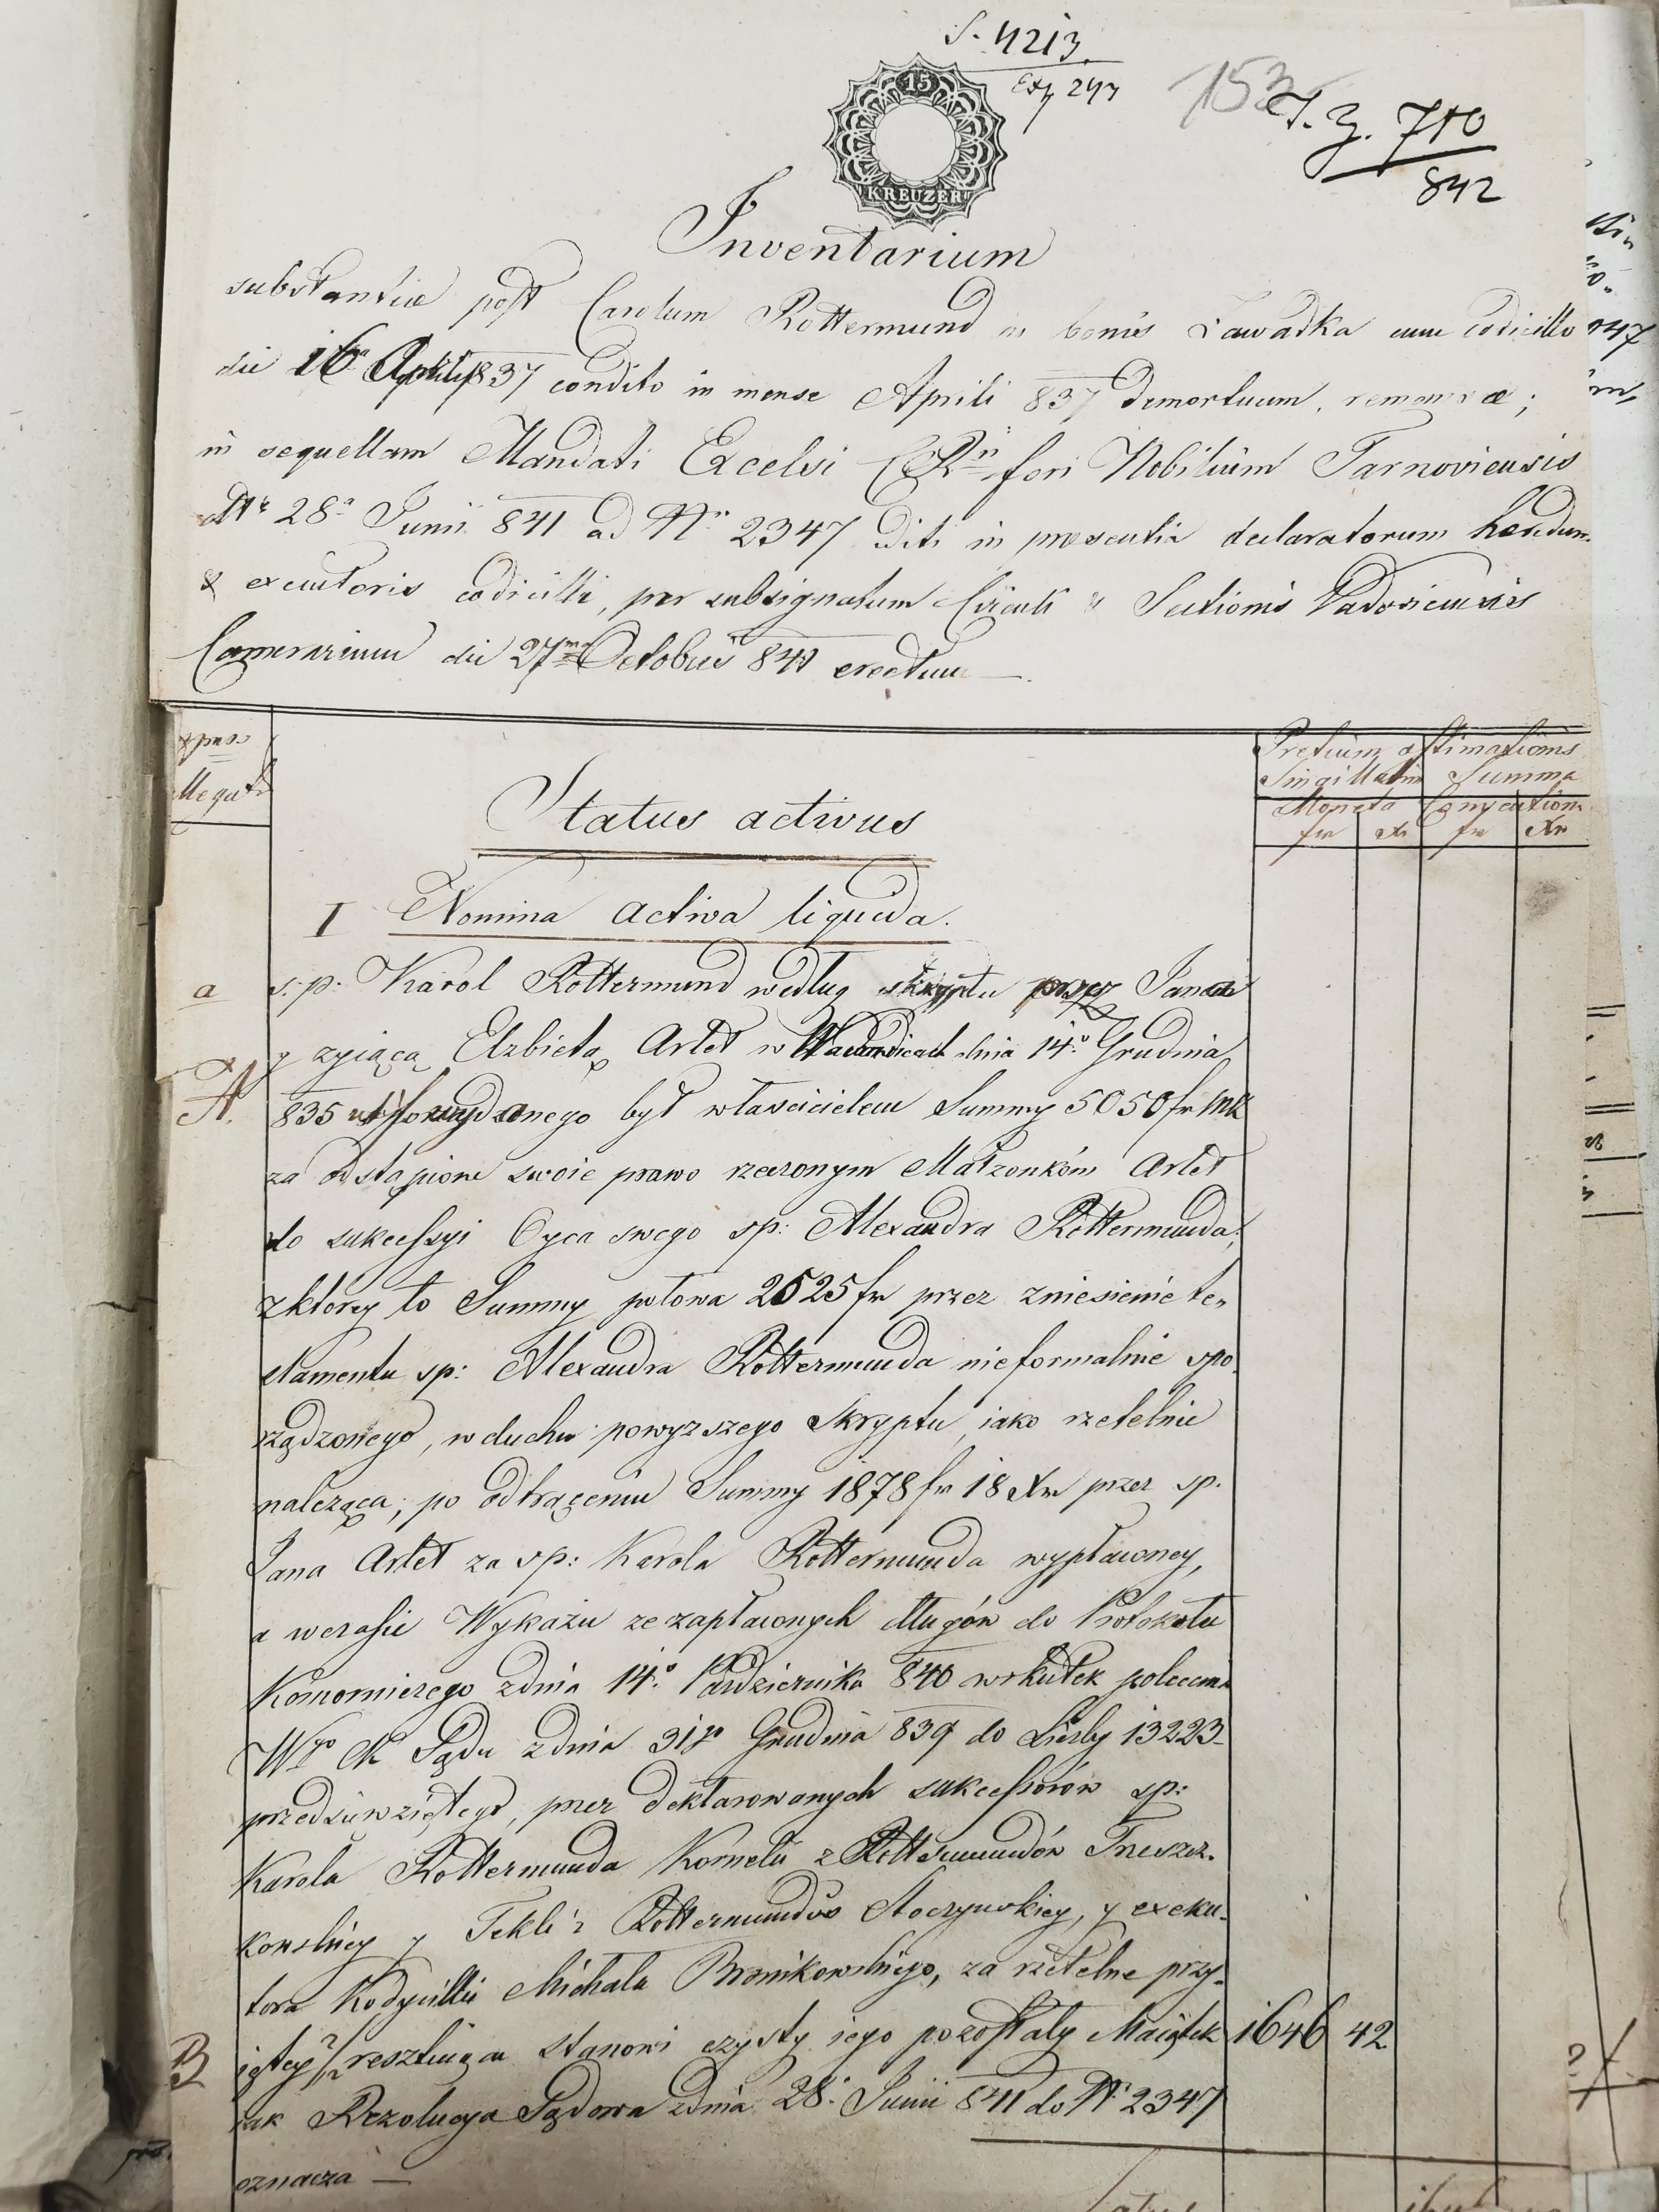 S. 4213
Exp 247
153
T. Z. 710
842
15
KREUZER
Inventarium
substantiae post Carolum Rottermund in bonis Zawadka cum Codicillo
die 16a Aprilis 837 condito in mense Aprili 837 demortuum, remansae;
in sequellam Mandati Excelsi C. R. fori Nobilium Tarnoviensis
28a Junii 841 ad Nr 2347 in presentia declaratorum heredum
& executoris codicilli, per subsignatum Circuli Sectionis Vadoviciensis
Camerarium die 27ma Octobris 841 erectum —.
Allegati
Pretium æstimationis
Singillatim Summa
Moneta Conventionis
fr Xr fr Xr
Status activus
I Nomina activa liquida.
a
s: p: Karol Rottermund według skryptu przez Jana
y żyiącą Elżbietę Artet w dnia 14o Grudnia
A.
835 był właścicielem Summy 5050 fr MK
za odstąpione swoie prawo rzeczonym Małżonków Artet
do sukcessyi Oyca swego sp: Alexandra Rottermunda;
z który to Summy połowa 2525 fr przez zniesienie te„
stamentu sp: Alexandra Rottermunda nieformalnie spo„
rządzonego, w duchu powyższego Skryptu, iako rzetelnie
należąca, po odtrąceniu Summy 1878 fr 18 Xr przez sp.
Jana Artet za sp: Karola Rottermunda wypłaconey,
a w czasie Wykazu ze zapłaconych długów do Protokołu
Komorniczego z dnia 14o Października 840 w skutek polecenia
Wgo CK Sądu z dnia 31go Grudnia 839 do Liczby 13223
przedsięwziętego, przez deklarowanych sukcessorów sp:
Karola Rottermunda Kornelii z Rottermundów Trzesz„
kowskiey y Tekli z Rottermundów Stoczyńskiey, y exeku„
tora Kodycilli Michała Bronikowskiego, za rzetelne przy„
B
iętey, resztuiąca stanowi czysty iego pozostały Maiątek 1646 42
iak Rezolucya Sądowa z dnia 28. Junii 841 do Nr 2347
oznacza —